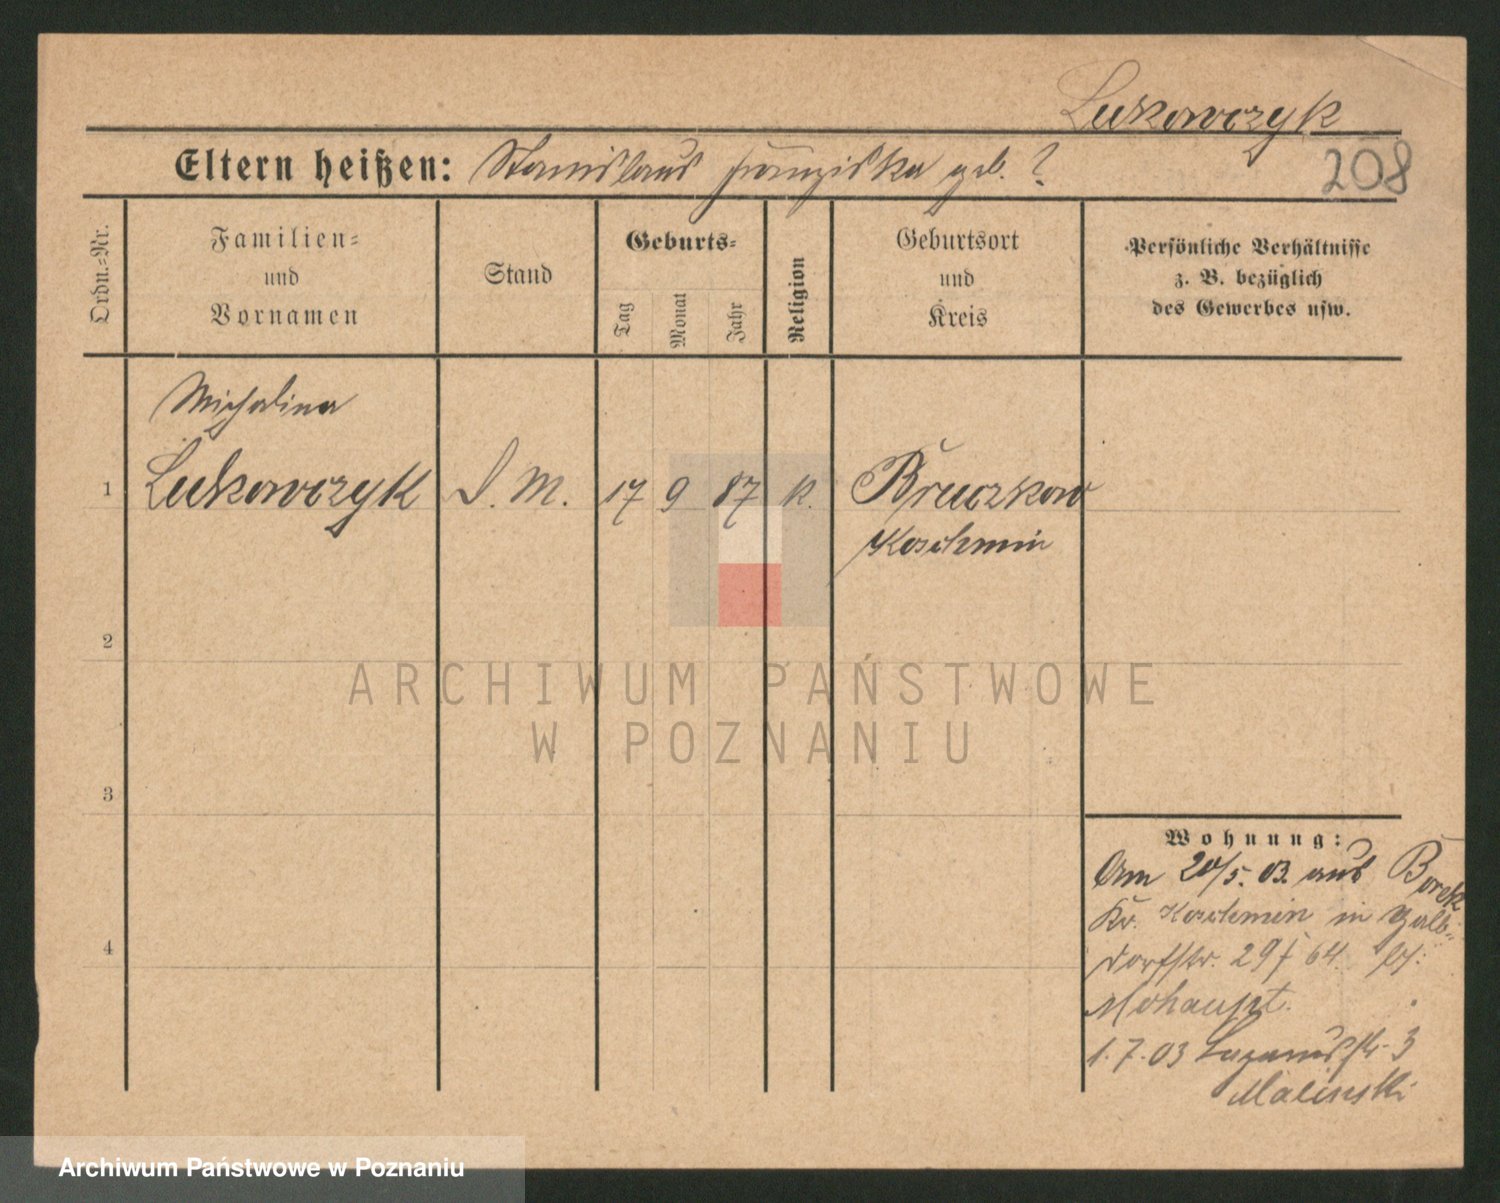 Lukowczyk
Eltern heißen: Stanislaus Franziska geb. ?
208
Ordn.=Nr.
Familien=
und
Vornamen
Stand
Geburts=
Tag
Monat
Jahr
Religion
Geburtsort
und
Kreis
Persönliche Verhältnisse
z. B. bezüglich
des Gewerbes usw.
Michalina
1 Lukowczyk D. M. 17 9 87 k. Bruczkow
Koschmin
2
3
4
Wohnung:
Am 20/5. 03. aus Borek
Kr. Koschmin in
dorfstr. 29 / 64. bei
Mohaupt.
1. 7. 03 Lazarusstr. 3
Malinski
ARCHIWUM PAŃSTWOWE
W POZNANIU
Archiwum Państwowe w Poznaniu